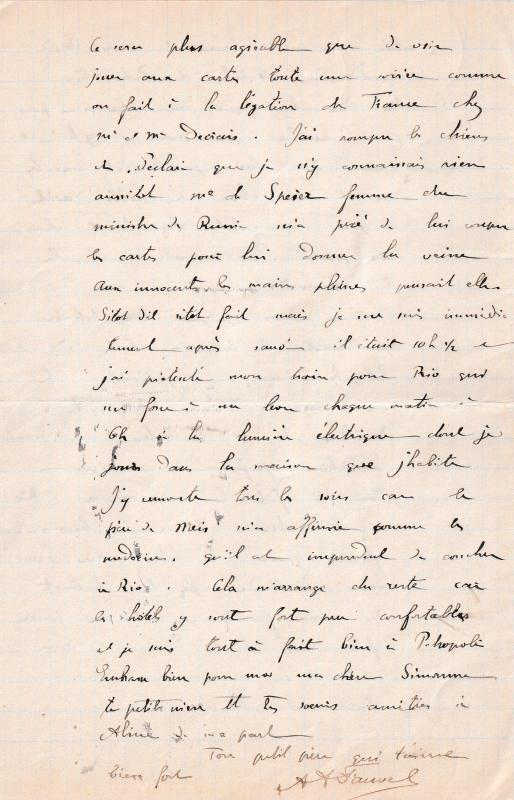 Ce sera plus agréable que de voir
jouer aux cartes toute une soirée comme
on fait à la légation de France chez
Mr et Me Decrais. J'ai rompu les chiens
et déclaré que je n'y connaissais rien
aussitot me de Speier femme du
ministre de Russie m'a prié de lui couper
les cartes pour lui donner la veine
aux innocents les mains pleines pensait elle.
Sitot dit sitot fait mais je me suis immédia
tement après sauvé il était 10h ½ et
j'ai prétexté mon train pour Rio qui
me force à me lever chaque matin à
6h à la lumière électrique dont je
jouis dans la maison que j'habite
J'y remonte tous les soirs car le
père de Meis m'a affirmé comme les
médecins qu'il est imprudent de coucher
à Rio. Cela m'arrange du reste car
les hôtels y sont fort peu confortables
et je suis tout à fait bien à Petropolis
Embrasse bien pour moi ma chère Simonne
ta petite mère et tes soeurs amitiés à
Aline de ma part
Ton petit père qui t'aime
bien fort